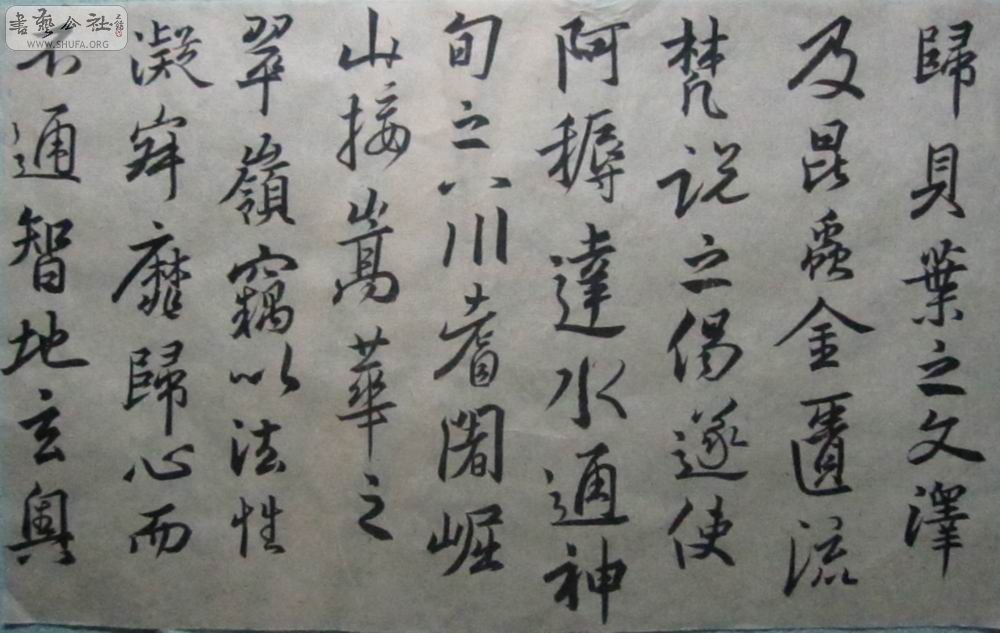 歸貝葉之文澤
及昆蟲金匱流
梵說之偈遂使
阿耨達水通神
甸之八川耆闍崛
山接嵩華之
翠嶺竊以法性
凝寂靡歸心而
不通智地玄奧
書藝公社
WWW.SHUFA.ORG